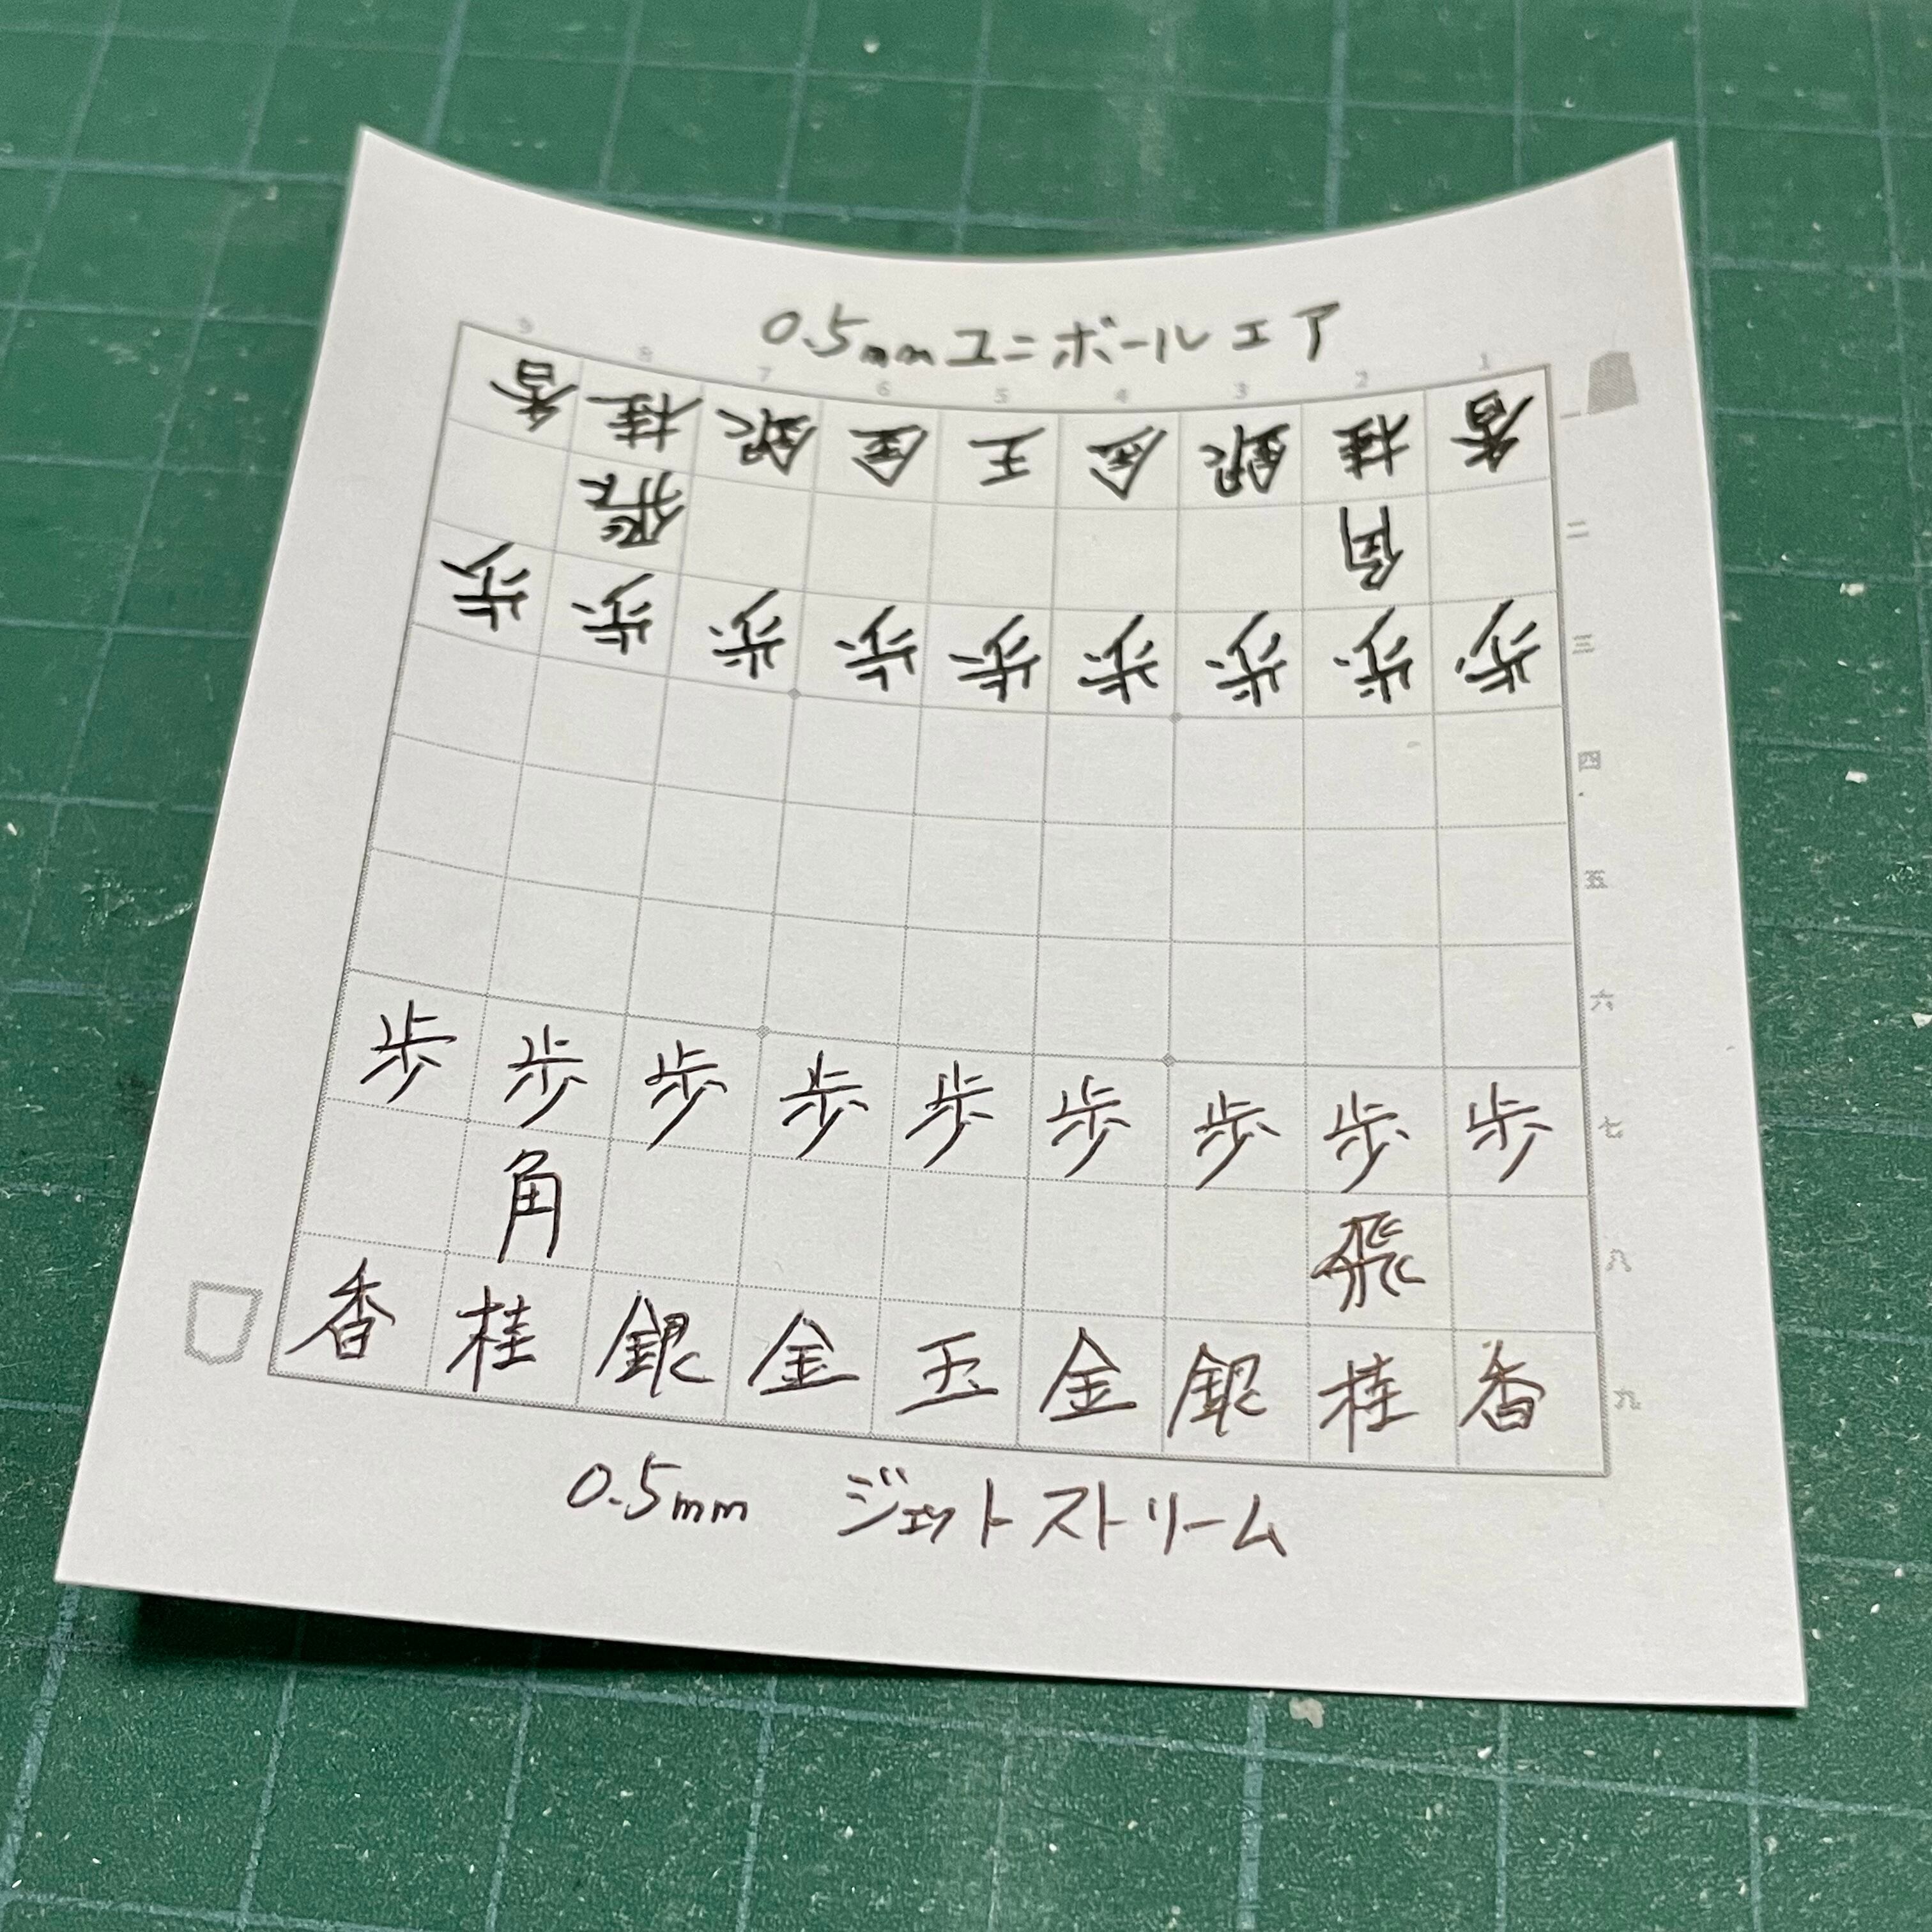 0.5mmユニボールエア
9 8 7 6 5 4 3 2 1
香桂銀金王金銀桂香 一
飛角 二
歩歩歩歩歩歩歩歩歩 三
四
五
六
歩歩歩歩歩歩歩歩歩 七
角飛 八
香桂銀金玉金銀桂香 九
0.5mm ジェットストリーム